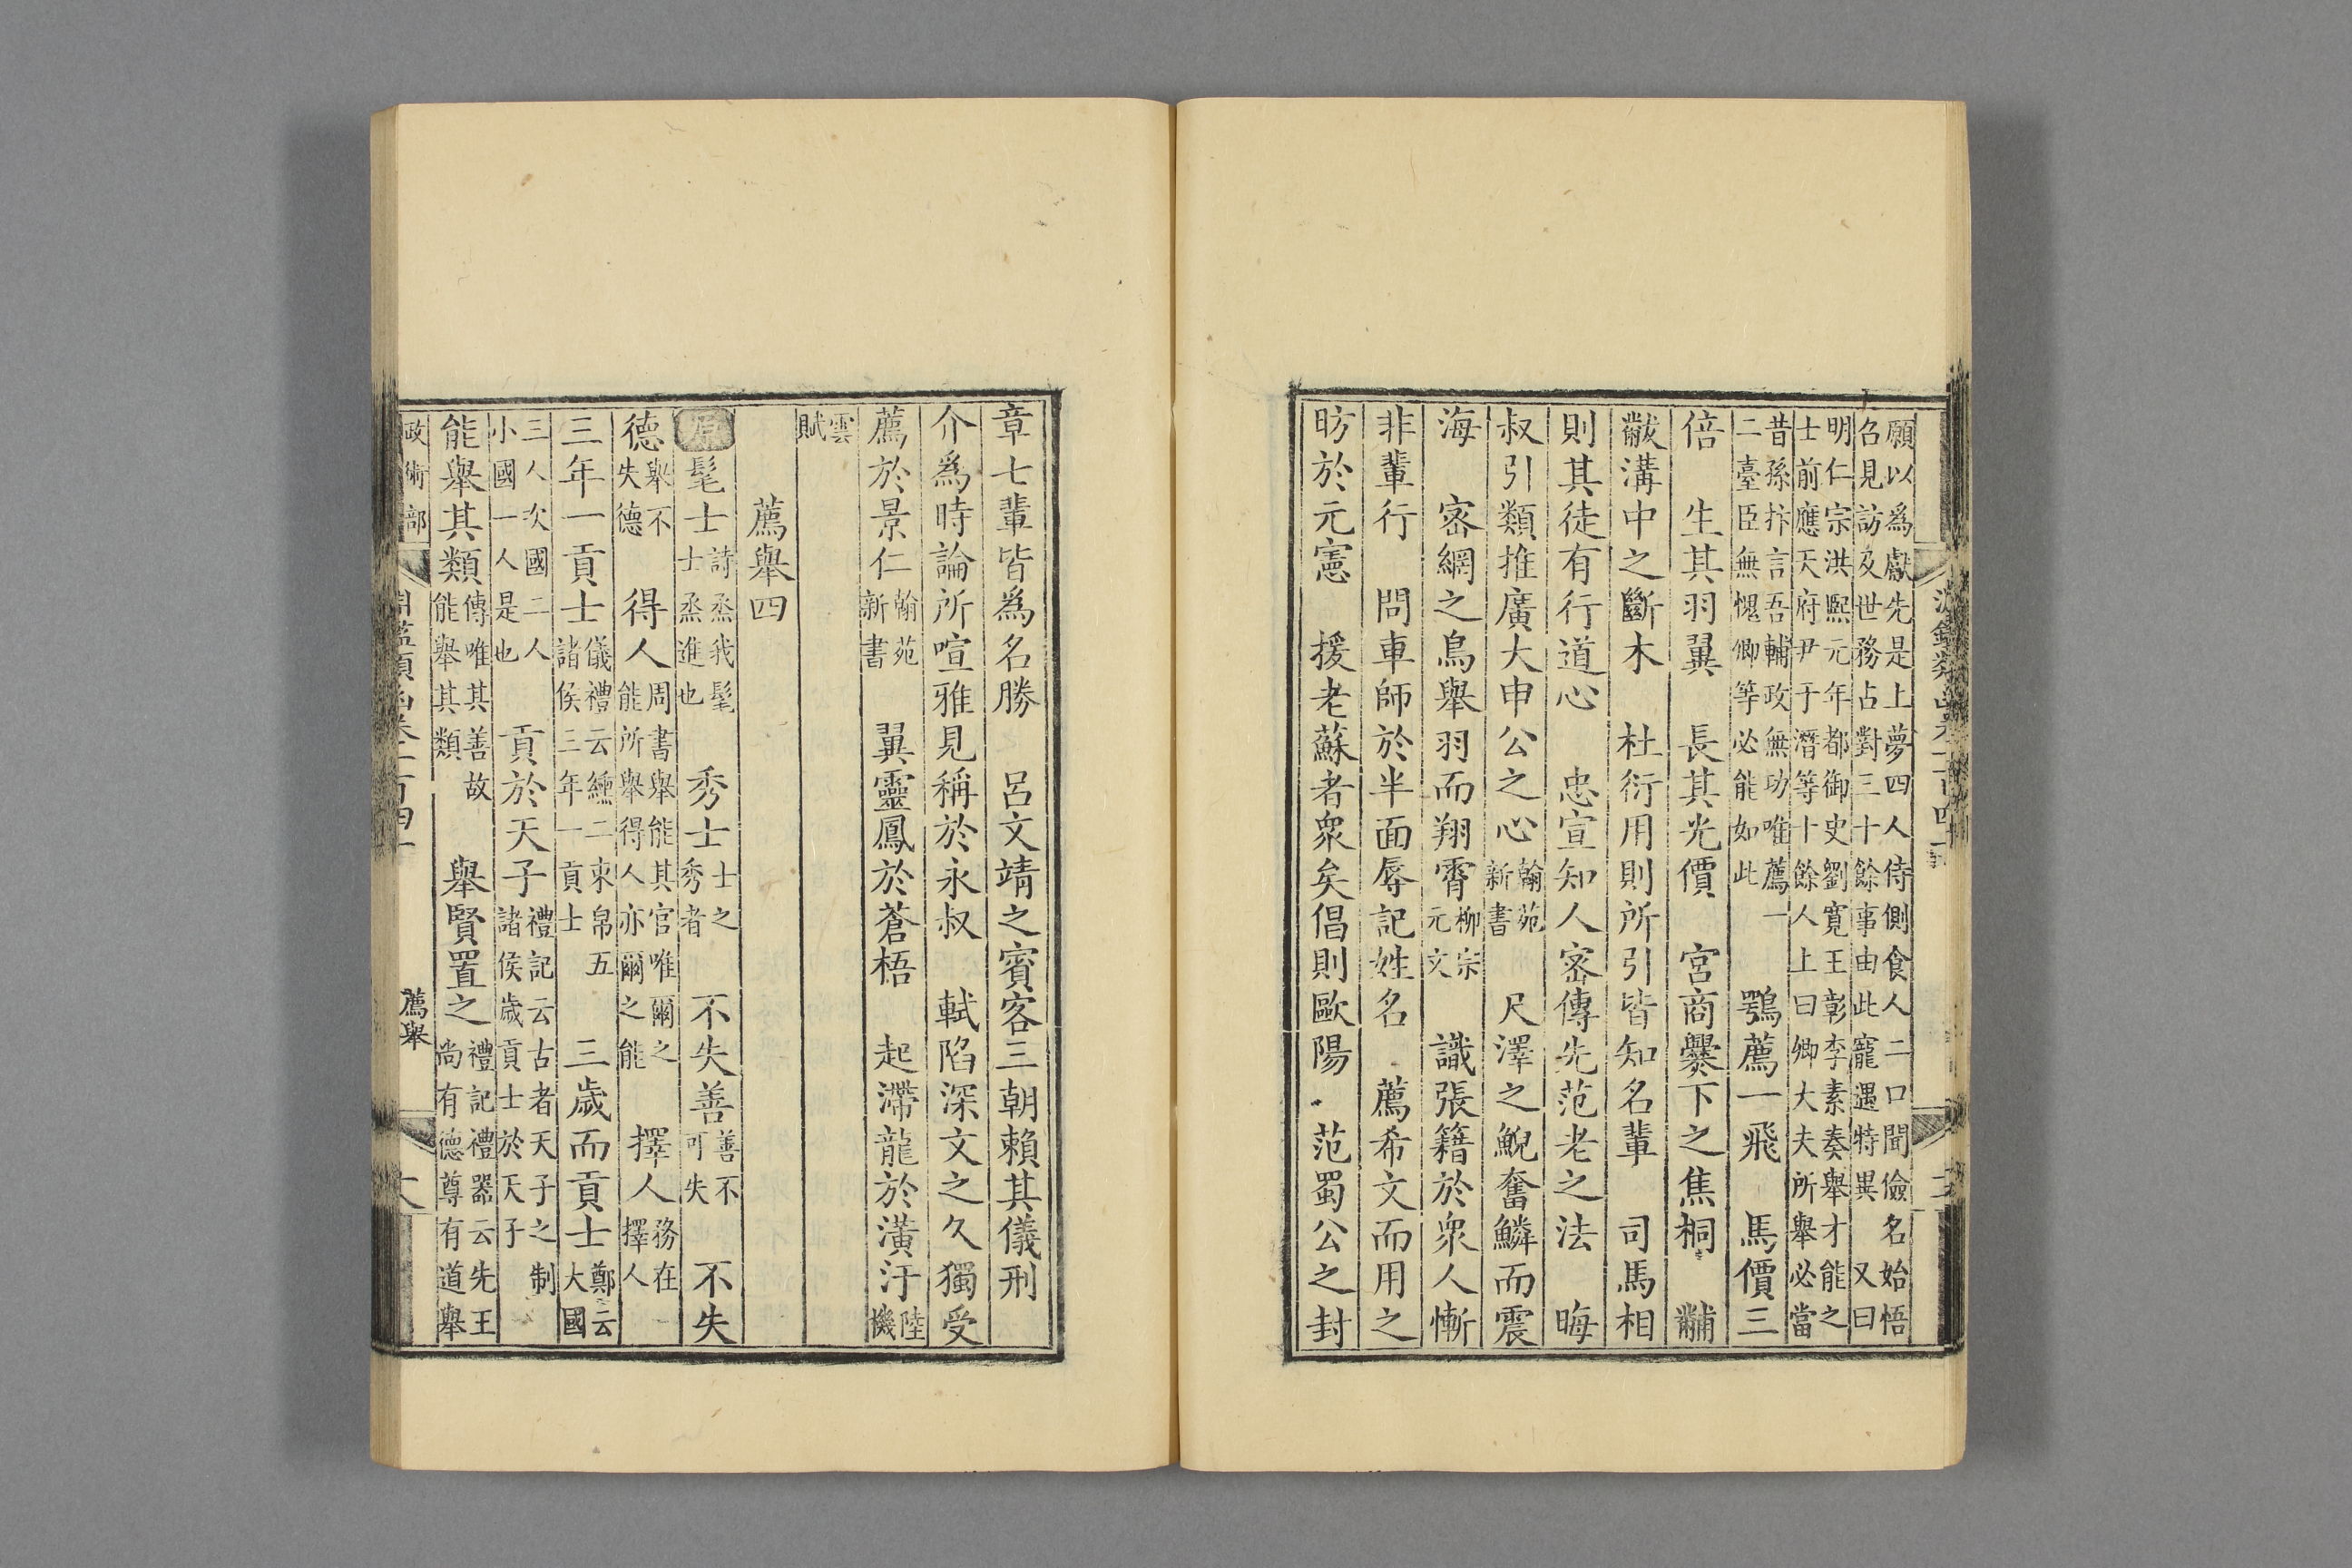 願以爲獻先是上夢四人侍側食人二口聞儉名始悟
召見訪及世務占對三十餘事由此寵遇特異 又曰
明仁宗洪熙元年都御史劉寬王彰李素奏舉才能之
士前應天府尹于潛等十餘人上曰卿大夫所舉必當
昔孫抃言吾輔政無功唯薦一
二臺臣無愧卿等必能如此
鶚薦一飛 馬價三
倍 生其羽翼 長其光價 宮商爨下之焦桐 黼
黻溝中之斷木 杜衍用則所引皆知名輩 司馬相
則其徒有行道心 忠宣知人密傳先范老之法 晦
叔引類推廣大申公之心
翰苑
新書
尺澤之鯢奮鱗而震
海 密網之鳥舉羽而翔霄
柳宗
元文
識張籍於衆人慚
非輩行 問車師於半面辱記姓名 薦希文而用之
昉於元憲 援老蘇者衆矣倡則歐陽 范蜀公之封
章七輩皆爲名勝 呂文靖之賓客三朝賴其儀刑
介爲時論所喧雅見稱於永叔 軾陷深文之久獨受
薦於景仁
翰苑
新書
翼靈鳳於蒼梧 起滯龍於潢汙
陸
機
雲
賦
薦舉四
原髦士
詩烝我髦
士烝進也
秀士
士之
秀者
不失善
善不
可失
不失
德
舉不
失德
得人
周書舉能其官唯爾之
能所舉得人亦爾之能
擇人
務在
擇人
三年一貢士
儀禮云纁二束帛五
諸侯三年一貢士
三歲而貢士
鄭云
大國
三人次國二人
小國一人是也
貢於天子
禮記云古者天子之制
諸侯歲貢士於天子
能舉其類
傳唯其善故
能舉其類
舉賢置之
禮記禮器云先王
尚有德尊有道舉
政術部
薦舉